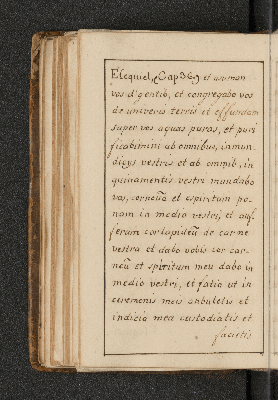 Ezequiel, Cap 36, et asuman
vos d'gentib, et congregabo vos
de univeris terris et effundam
super vos aquas puras, et puri
ficabitimi ab omnibus, inmun
dicys vestris et ab omnib, in
quinamentis vestri mundabo
vos, corneuā et espiritum po
nam in medio vestri, et auf
feram cor lapideū de carne
vestra et dabo vobis cor car-
neū et spiritum meū dabo in
medio vestri, et fatia ut in
ceremonis meis anbuletis et
indicio mea custodiatis et
facietis